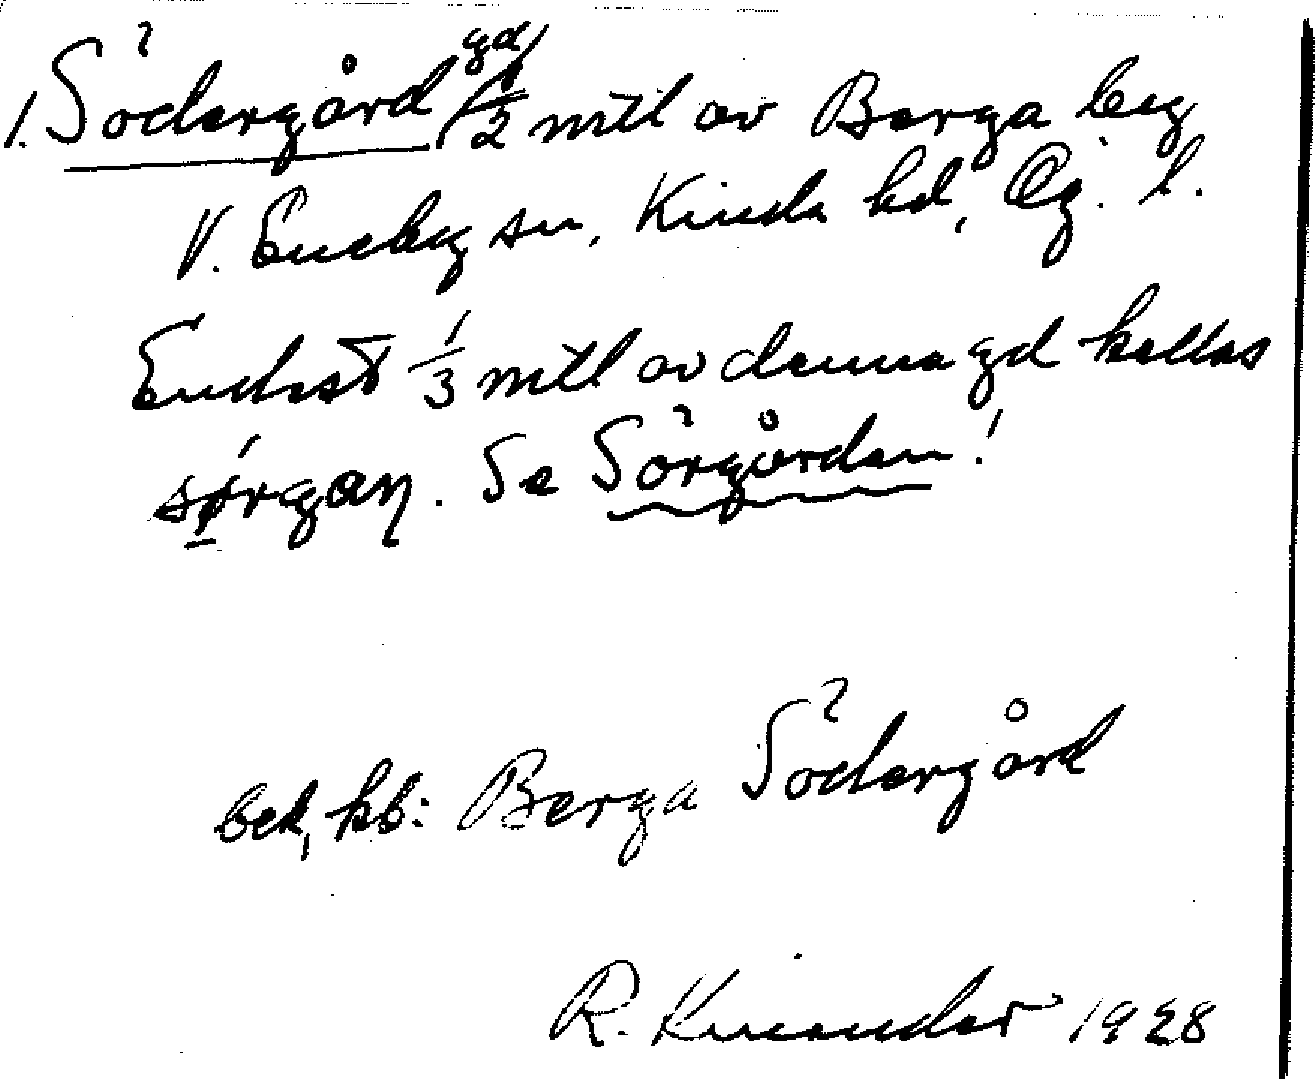 1. Södergård, gd, 1/2 mtl av Berga by
V. Eneby sn, Kinda hd, Ög. l.
Endast 1/3 mtl av denna gd kallas
sørgaŋ. Se Sörgården!
bek, kb: Berga Södergård
R. Kinander 1928